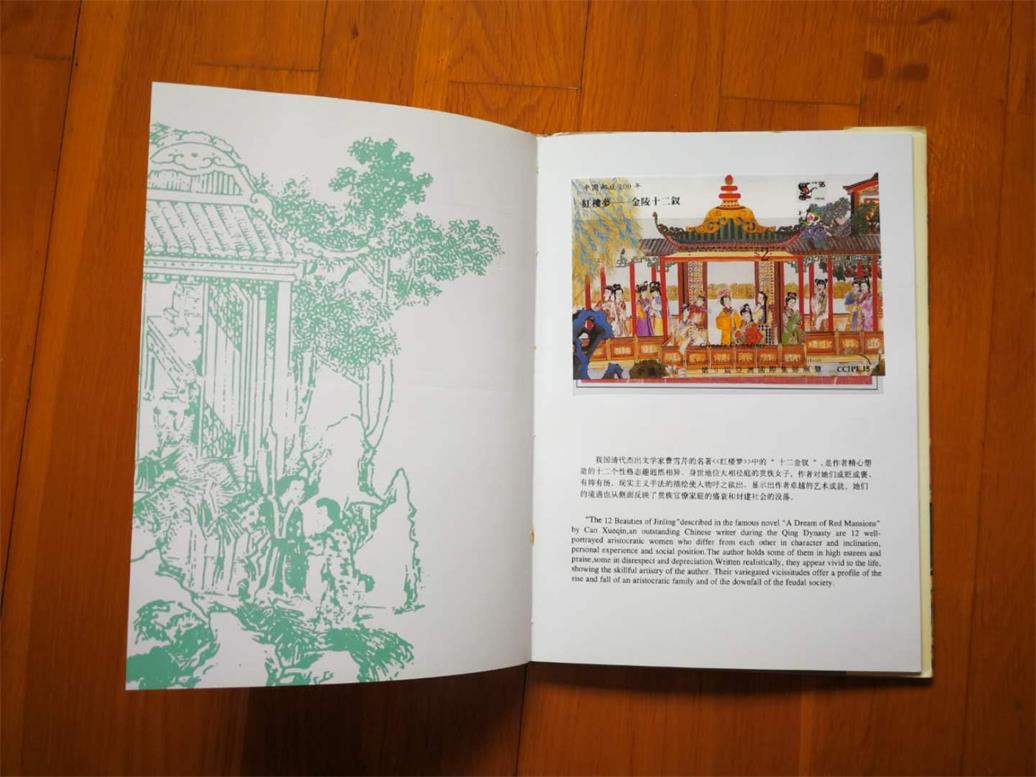 中国邮政100年
紅樓夢——金陵十二釵
$2
第十屆亞洲國際集郵展覽
我国清代杰出文学家曹雪芹的名著<<红楼梦>>中的“ 十二金钗 ”,是作者精心塑
造的十二个性格志趣迥然相异、身世地位大相径庭的贵族女子。作者对她们或贬或褒、
有抑有扬。现实主义手法的描绘使人物呼之欲出。显示出作者卓越的艺术成就。她们
的境遇也从侧面反映了贵族官僚家庭的盛衰和封建社会的没落。
"The 12 Beauties of Jinling"described in the famous novel "A Dream of Red Mansions"
by Cao Xueqin,an outstanding Chinese writer during the Qing Dynasty are 12 well-
portrayed aristocratic women who differ from each other in character and inclination,
personal experience and social position.The author holds some of them in high esteem and
praise,some in disrespect and depreciation.Written realistically, they appear vivid to the life,
showing the skillful artistry of the author. Their variegated vicissitudes offer a profile of the
rise and fall of an aristocratic family and of the downfall of the feudal society.